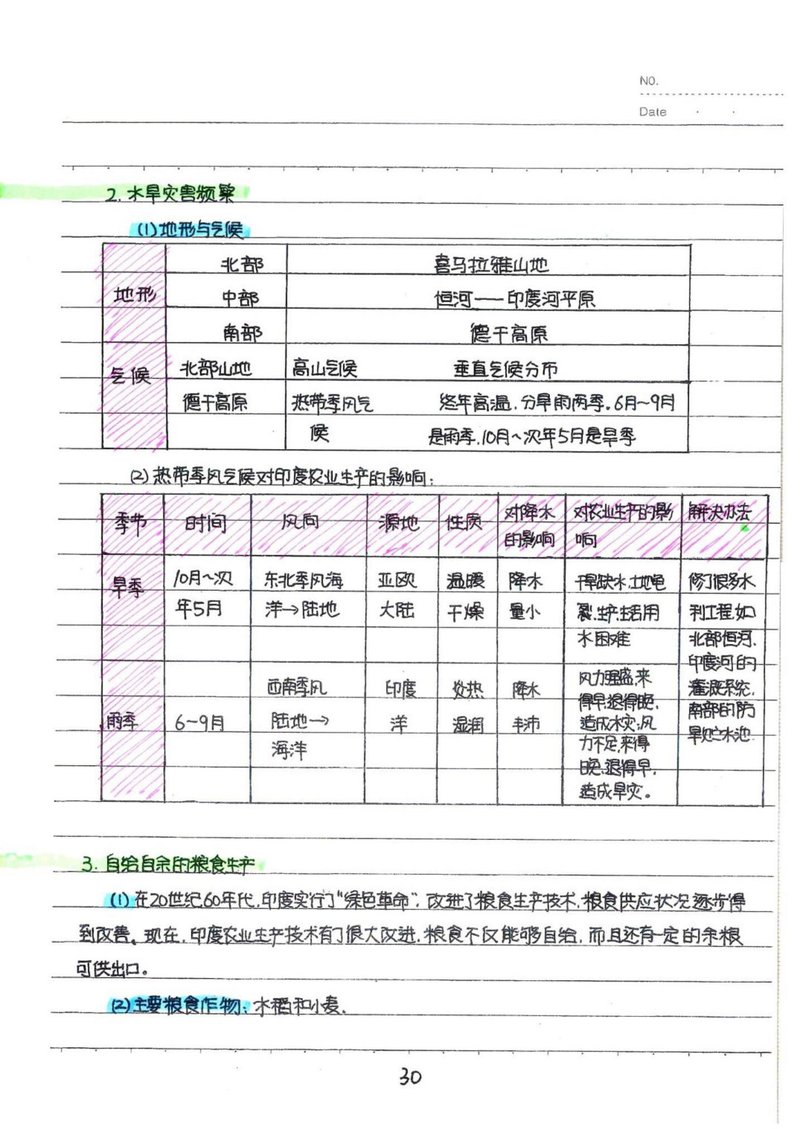 NO.
Date
2. 水旱灾害频繁
(1) 地形与气候
地形 北部 喜马拉雅山地
中部 恒河——印度河平原
南部 德干高原
气候 北部山地 高山气候 垂直气候分布
德干高原 热带季风气候 终年高温,分旱雨两季。6月~9月
是雨季,10月~次年5月是旱季
(2) 热带季风气候对印度农业生产的影响:
季节 时间 风向 源地 性质 对降水的影响 对农业生产的影响 解决办法
旱季 10月~次年5月 东北季风海洋→陆地 亚欧大陆 温暖干燥 降水量小 干旱缺水,土地龟裂,生产,生活用水困难
雨季 6~9月 西南季风陆地→海洋 印度洋 炎热湿润 降水丰沛 风力强盛,来得早,退得晚,造成水灾,风力不足,来得晚,退得早,造成旱灾。
修了很多水利工程,如北部恒河,印度河的灌溉系统,南部的防旱贮水池
3. 自给自余的粮食生产
(1) 在20世纪60年代,印度实行了“绿色革命”,改进了粮食生产技术,粮食供应状况逐步得
到改善。现在,印度农业生产技术有了很大改进,粮食不仅能够自给,而且还有一定的余粮
可供出口。
(2) 主要粮食作物:水稻和小麦.
30